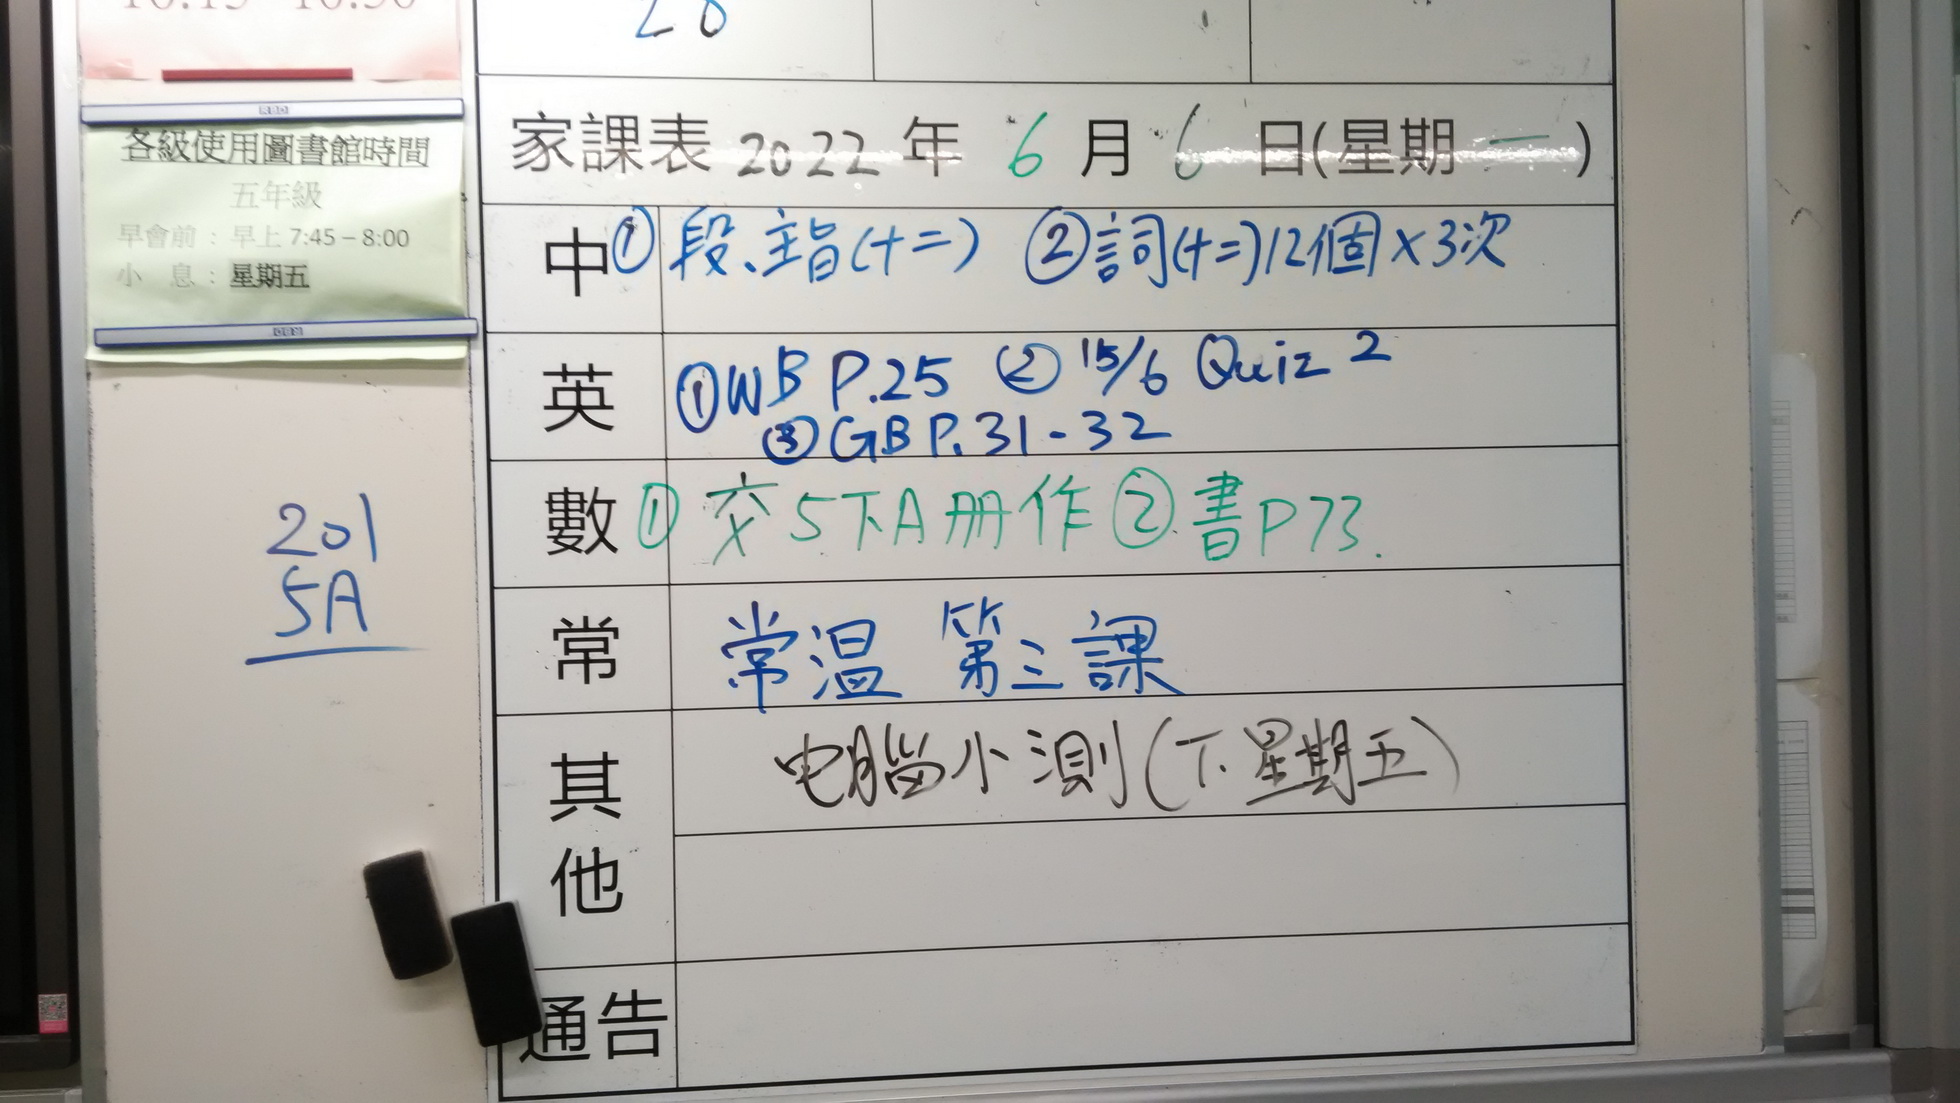 各級使用圖書館時間
五年級
早會前：早上 7:45 – 8:00
小 息：星期五
201
5A
家課表 2022 年 6 月 6 日(星期一)
中 ① 段、主旨(十二) ② 詞(十二)12個×3次
英 ① WB P.25 ② 15/6 Quiz 2
③ GB P.31-32
數 ① 交5下A冊作 ② 書P73.
常 常温 第三課
其他 电腦小測(下星期五)
通告